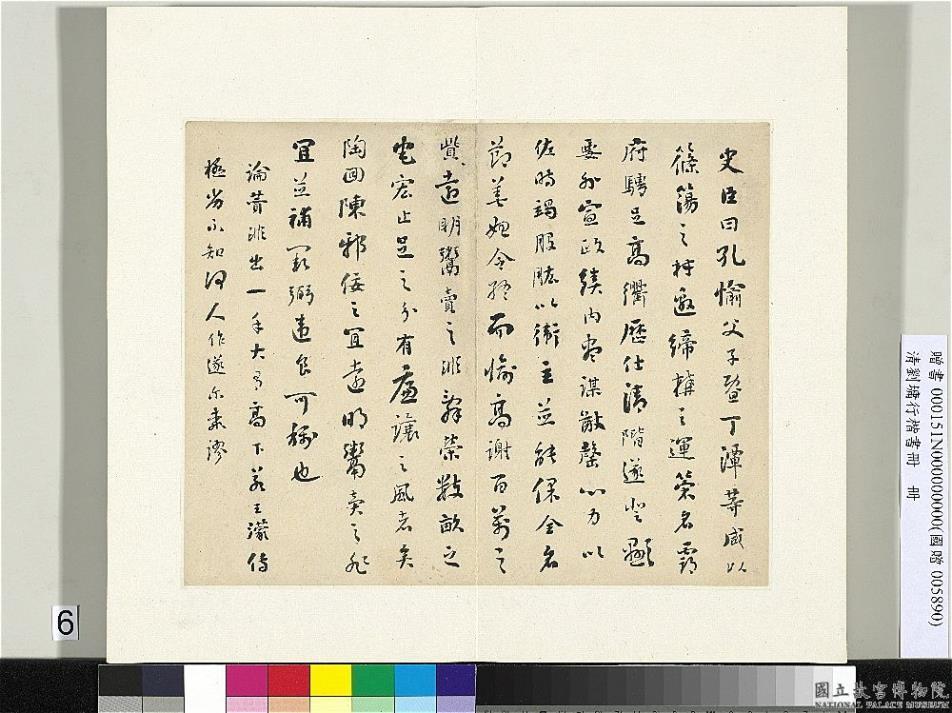 史臣曰孔愉父子暨丁潭等咸以
篠簜之材邀締構之運策名霸
府騁足高衢歷仕清階遂登顯
要外宣政績內盡謀猷罄心力以
佐時竭股肱以衛主並能保全名
節善始令終而愉高謝百萬之
貲遠明鬻賣之非辭榮數畝之
宅宏止足之分有廉讓之風者矣
陶回陳邪佞之宜遠明鬻賣之非
宜並補闕弼違良可稱也
論贊非出一手大有高下若王濛傳
極劣不知何人作遂爾謬
贈書 000151N000000000(國贈 005890)
清劉墉行楷書冊 冊
6
國立故宮博物院
NATIONAL PALACE MUSEUM